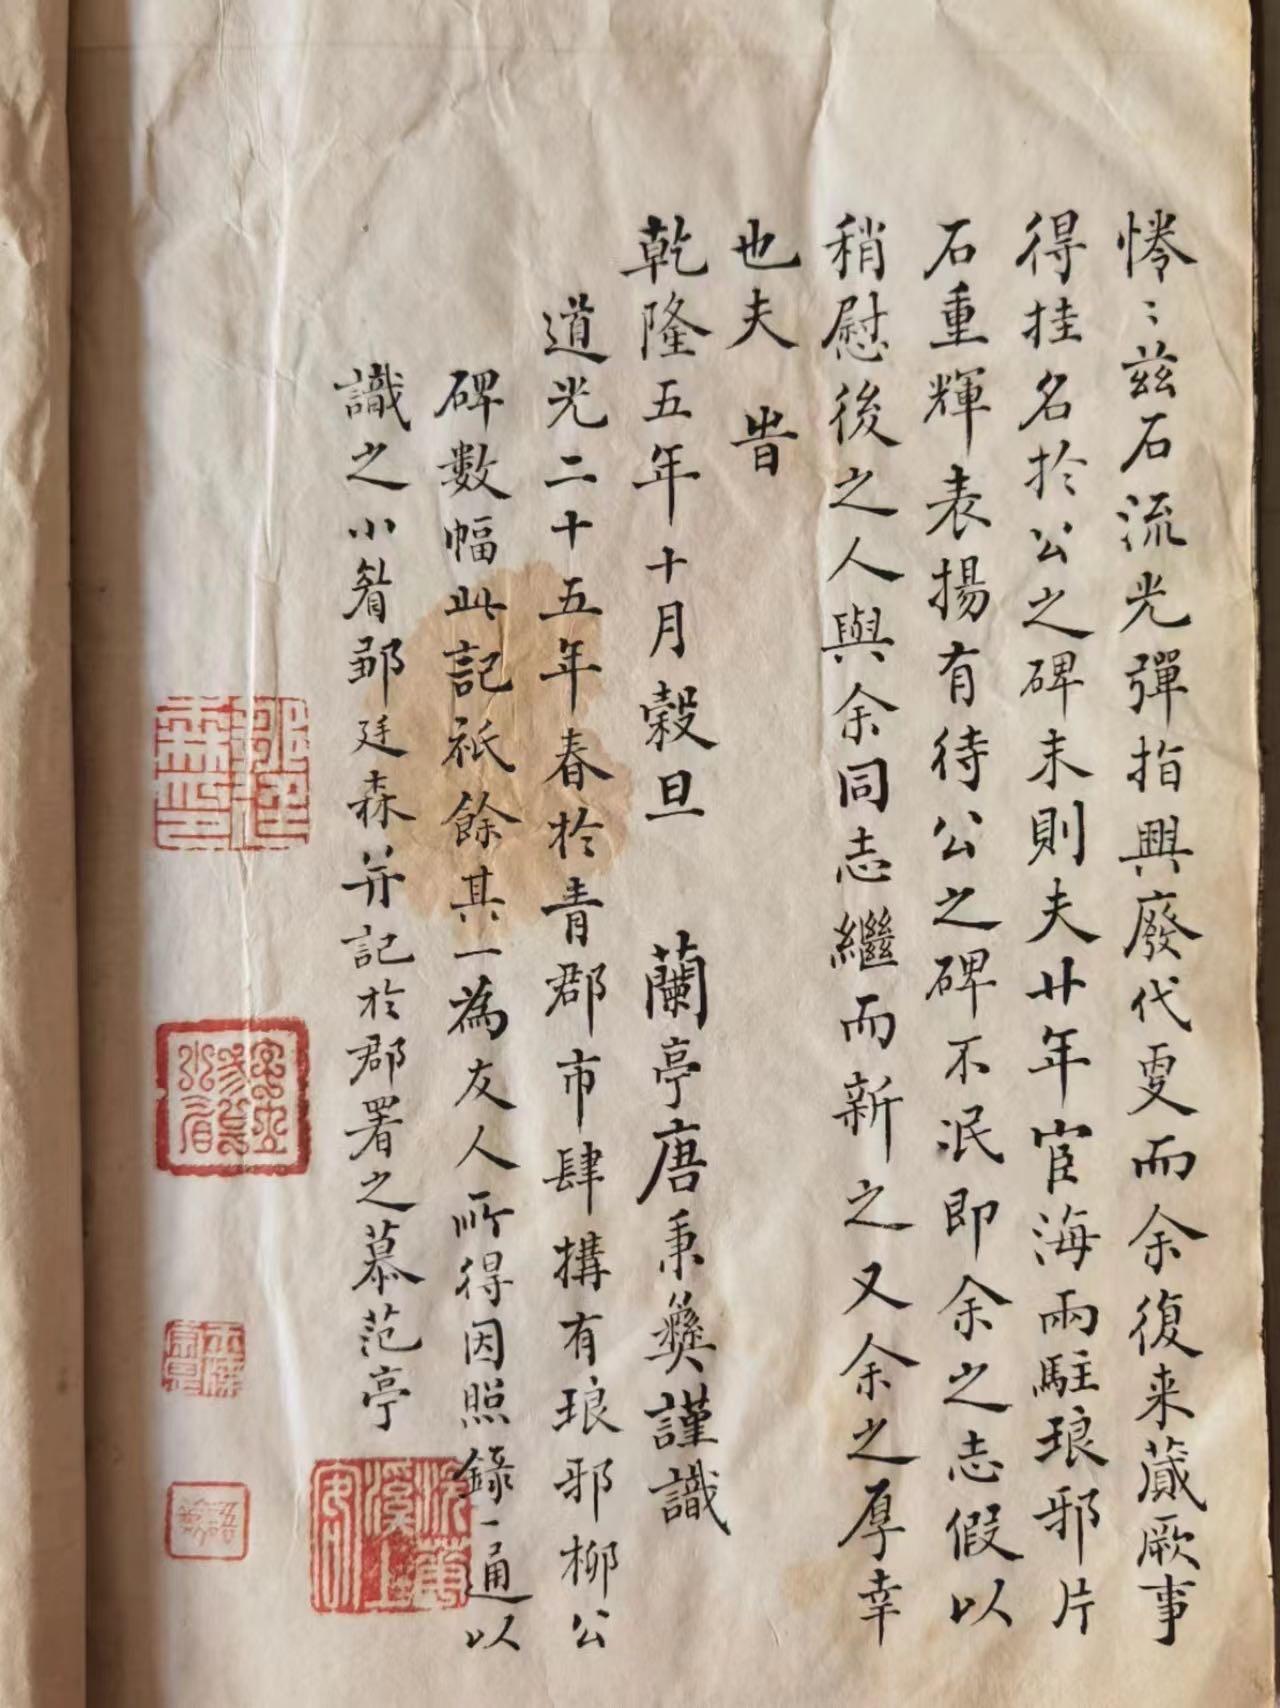 惓〻茲石流光彈指興廢代更而余復来蕆厥事
得挂名於公之碑末則夫廿年宦海兩駐琅邪片
石重輝表揚有待公之碑不泯即余之志假以
稍慰後之人與余同志繼而新之又余之厚幸
也夫 旹
乾隆五年十月穀旦 蘭亭唐秉彝謹識
道光二十五年春於青郡市肆搆有琅邪柳公
碑數幅此記祇餘其一為友人所得因照錄一通以
識之小眉邱廷森并記於郡署之慕范亭